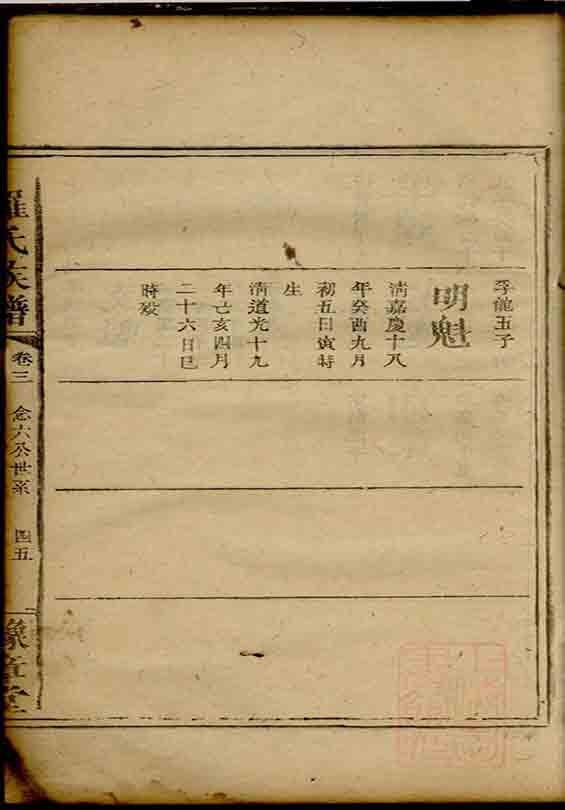 孚龍玉子
明魁
清嘉慶十八
年癸酉九月
初五日寅時
生
清道光十九
年己亥四月
二十六日巳
時殁
羅氏族譜
卷三
念六公世系
四五
豫章堂